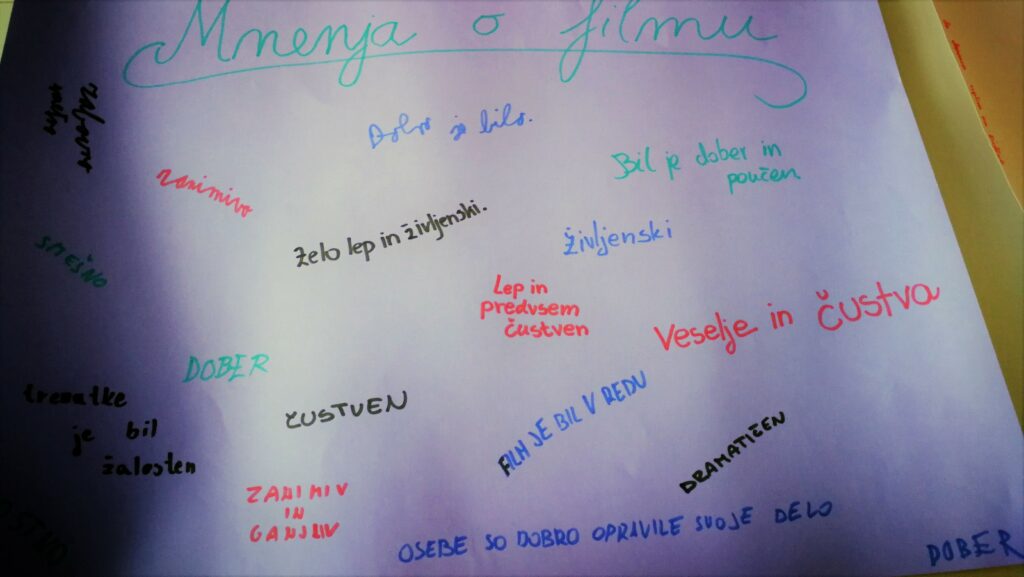 Mnenja o filmu
Dobro je bilo.
Bil je dober in
poučen
zanimivo
Zelo lep in življenski.
življenski
SMEŠNO
Lep in
predvsem
čustven
Veselje in čustva
DOBER
trenutke
je bil
žalosten
ČUSTVEN
FILM JE BIL V REDU
DRAMATIČEN
ZANIMIV
IN
GANJLIV
OSEBE SO DOBRO OPRAVILE SVOJE DELO
DOBER